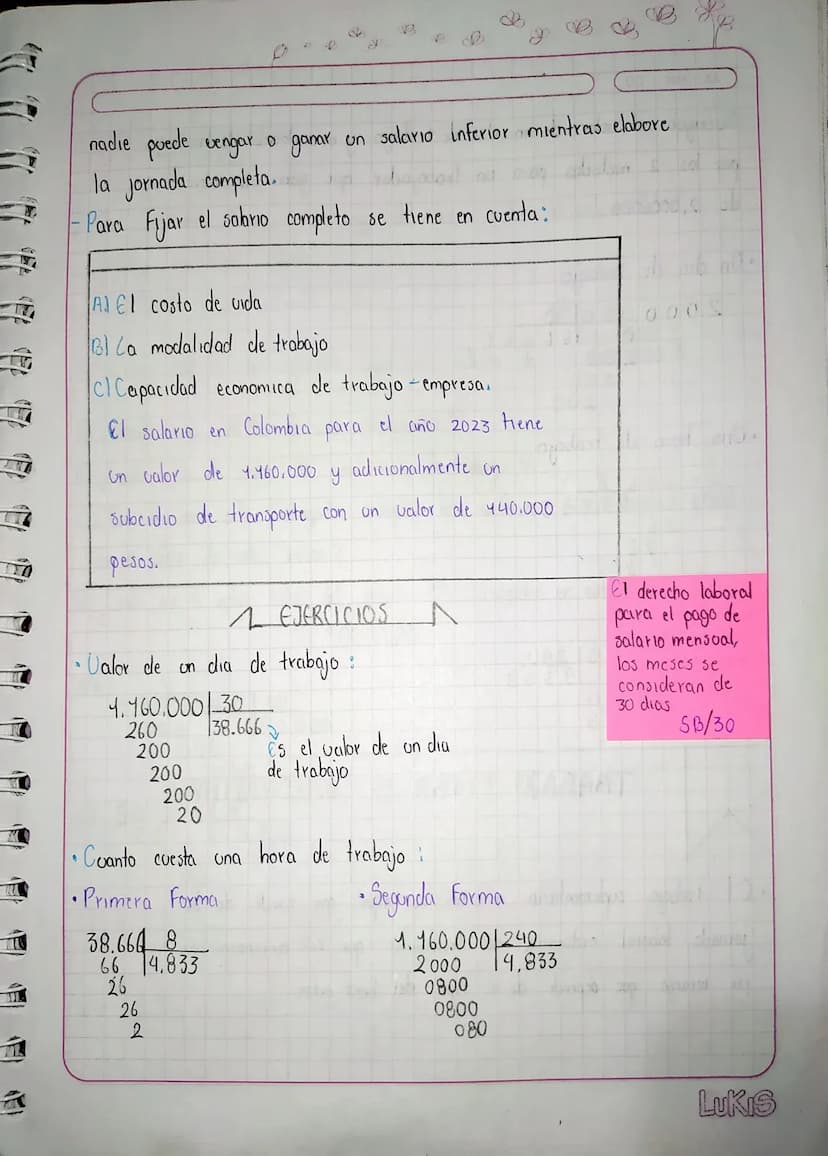 nadie puede vengar o ganar un salario inferior mientras elabore
la jornada completa.
- Para Fijar el salario completo se tiene en cuenta:
A) El costo de vida
B) La modalidad de trabajo
C) Capacidad economica de trabajo - empresa.
El salario en Colombia para el año 2023 tiene
un valor de 1.160.000 y adicionalmente un
subcidio de transporte con un valor de 140.000
pesos.
EJERCICIOS
El derecho laboral
para el pago de
salario mensual,
los meses se
consideran de
30 dias
SB/30
• Valor de un dia de trabajo:
1.160.000 30
260 38.666
200 Es el valor de un dia
200 de trabajo
200
20
• Cuanto cuesta una hora de trabajo:
• Primera Forma
38.666 8
66 4.833
26
26
2
• Segunda Forma
1.160.000 240
2000 4,833
0800
0800
080
LUKIS